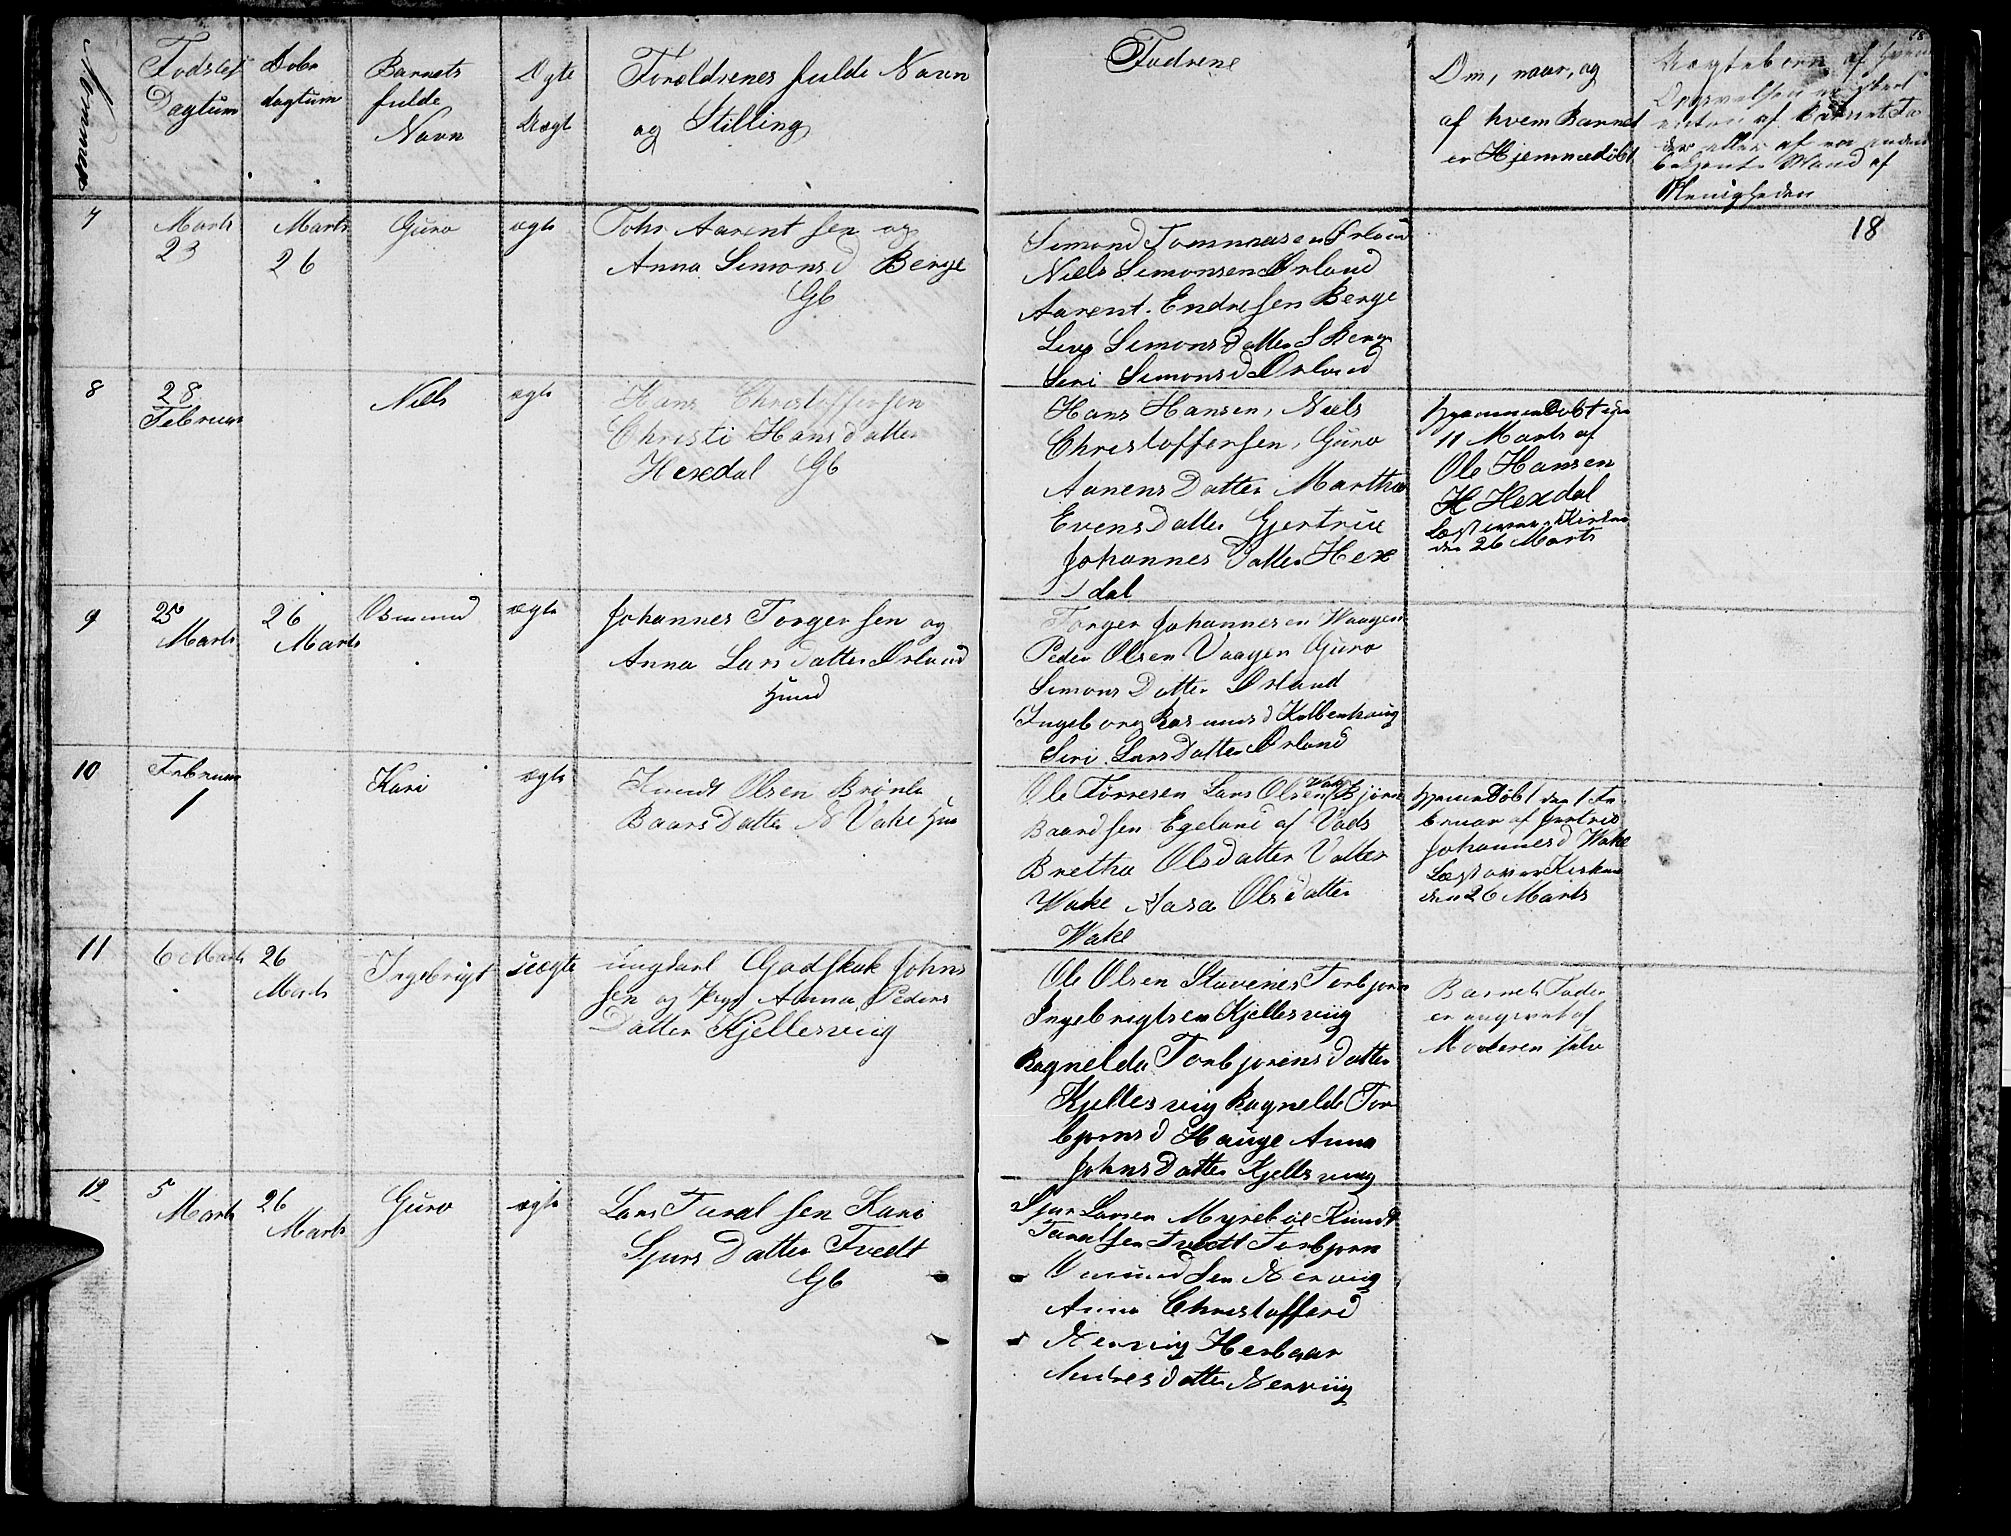 Nummer
Fødsels
Dagtum
Døbe
dagtum
Barnets
fulde
Navn
Ægte
Uægt
Foreldrenes fulde Navn
og Stilling
Fadrene
Om, naar, og
af hvem Barnet
er Hjemmedøbt
Uægteborn, af hvem
af Barnets Fa
der eller af en anden
bekjente Mand af
Menigheden
7
Marts
23
Marts
26
Guro
ægte
Tohr Aarentsen og
Anna Simonsd Berge
Gb
Simond Tommasen Ørland
Niels Simonsen Ørland
Aarent Endresen Berge
Simonsdatter S Berge
Seri Simonsd Ørland
18
8
28
Februar
Niels
ægte
Hans Christoffersen
Christi Hansdatter
Hexedal Gb
Hans Hansen, Niels
Christoffersen, Guro
Aanensdatter Martha
Evensdatter Gjertrue
Johannesdatter Hexe
dal
hjemmedøbt den
11 Marts af
Ole Hansen
H Hexdal
Læst over i Kirken
den 26 Marts
9
25
Marts
26
Marts
Osmund
ægte
Johannes Torgersen og
Anna Larsdatter Ørland
Huusd
Torger Johannesen Waagen
Peder Olsen Vaagen Guro
Simonsdatter Ørland
Ingeborg Rasmusd Kolbenhaug
Seri Larsdatter Ørland
10
Februar
1
Kari
ægte
Knudt Olsen Brønla
Baarsdatter N Vake Huu
Ole Tørresen Lars Olsen Vake Bjørn
Baardsen Egeland af Vads
Bretha Olsdatter Valler
Wake Aasa Olsdatter
Wake
hjemmedøbt den 1 Fe
bruar af Jertrue
Johannesd Wake
Læst over i Kirken
den 26 Marts
11
6 Marts
26
Marts
Ingebrigt
uægte
ungkarl Godskalk Johns
sen og Pige Anna Peders
Datter Kjellesviig
Ole Olsen Stavenes Torbjørn
Ingebrigtsen Kjellesviig
Ragnelda Torbjørensdatter
Kjellesvig Ragnelde Tor
bjørnsd Hauge Anna
Johnsdatter Kjellsviig
Barnets Fader
er angivet af
Moderen selv
12
5
Marts
26
Marts
Guro
ægte
Lars Taralsen Kari
Sjursdatter Tvedt
Gb
Sjur Larsen Myrebøe Knudt
Taralsen Tvedt Torbjørn
Omundsen Nerviig
Anna Christofferd
Nerviig Herbaar
Andresdatter Nerviig